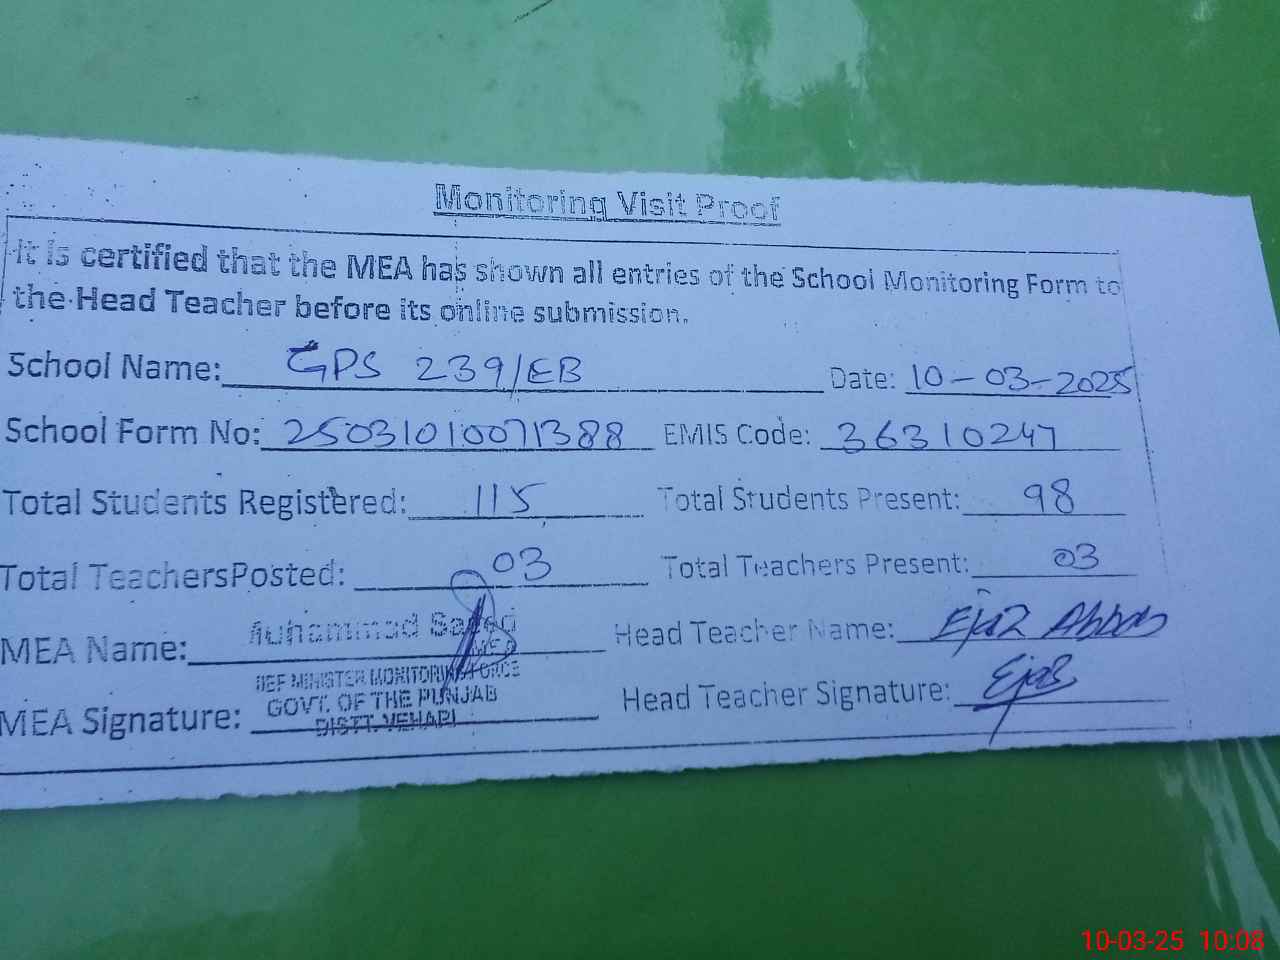 Monitoring Visit Proof
It is certified that the MEA has shown all entries of the School Monitoring Form to
the Head Teacher before its online submission.
School Name: GPS 239/EB Date: 10-03-2025
School Form No: 25031010071388 EMIS Code: 36310247
Total Students Registered: 115 Total Students Present: 98
Total TeachersPosted: 03 Total Teachers Present: 03
MEA Name: Muhammad Saeed Head Teacher Name: Ejaz Abbas
MEA
CHIEF MINISTER MONITORING FORCE
GOVT. OF THE PUNJAB
MEA Signature: DISTT. VEHARI Head Teacher Signature: Ejaz
10-03-25 10:08